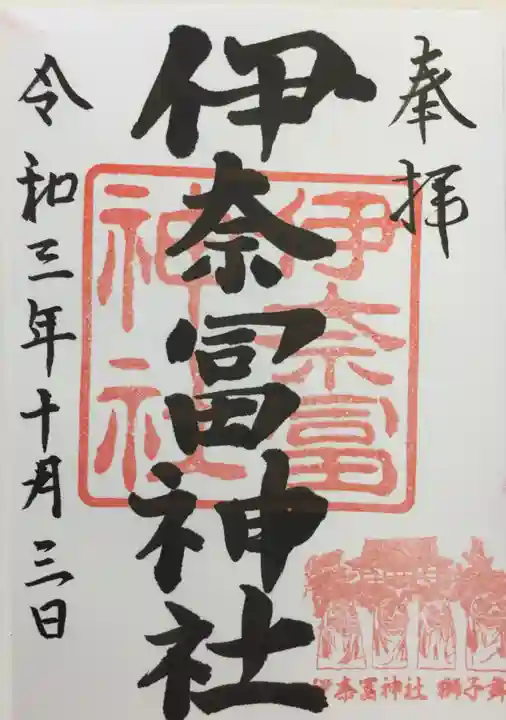 奉拝
伊奈冨神社
令和三年十月三日
伊奈冨
神社
伊奈冨神社 獅子舞